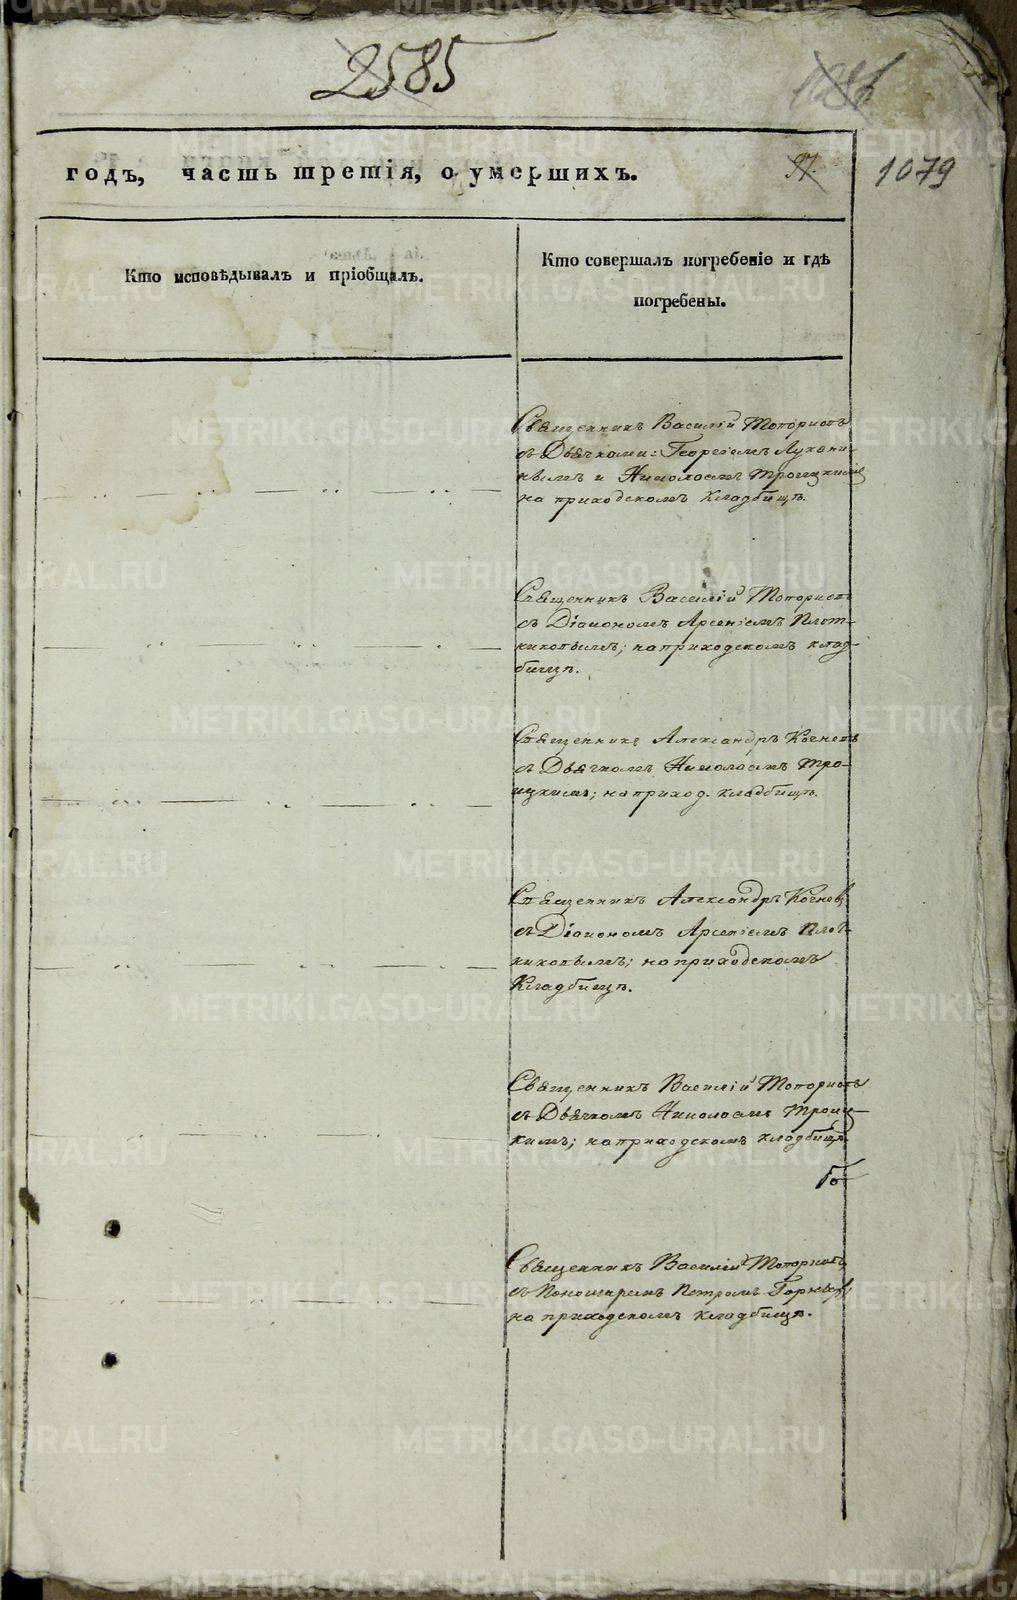 2585
1286
годъ, часть третія, о умершихъ.
97.
1079
Кто исповѣдывалъ и пріобщалъ.
Кто совершалъ погребеніе и гдѣ
погребены.
Священникъ Василій Топорковъ
съ Дьячками: Георгіемъ Лукани-
нымъ и Николаемъ Троицкимъ
на приходскомъ Кладбищѣ.
Священникъ Василій Топорковъ
съ Діакономъ Арсеніемъ Плот-
никовымъ; на приходскомъ клад-
бищѣ.
Священникъ Александръ Кочневъ
съ Дьячкомъ Николаемъ Тро-
ицкимъ; на приход. кладбищѣ.
Священникъ Александръ Кочневъ
съ Діакономъ Арсеніемъ Плот-
никовымъ; на приходскомъ
Кладбищѣ.
Священникъ Василій Топорковъ
съ Дьячкомъ Николаемъ Троиц-
кимъ; на приходскомъ кладбищѣ.
Го-
Священникъ Василій Топорковъ
съ Пономаремъ Петромъ
на приходскомъ кладбищѣ.
METRIKI.GASO-URAL.RU